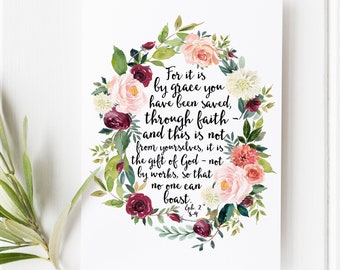 For it is
by grace you
have been saved,
through faith -
and this is not
from yourselves, it is
the gift of God - not
by works, so that
no one can
boast.
Eph. 2
8-9